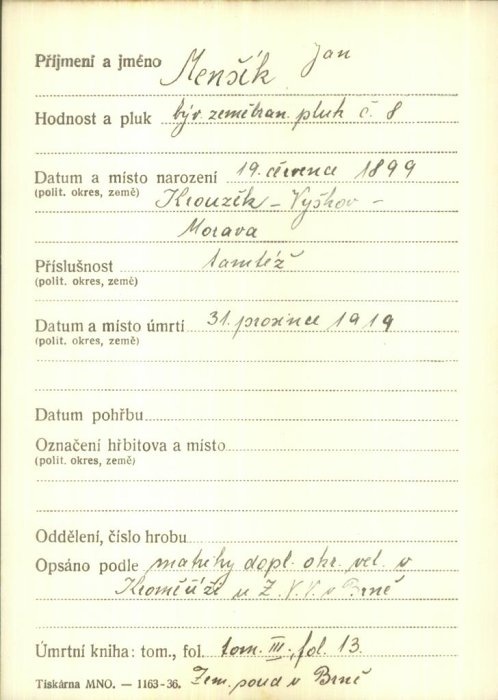 Příjmení a jméno Menšík Jan
Hodnost a pluk býv. zeměbran. pluk č. 8
Datum a místo narození 19. července 1899
(polit. okres, země) Kroužek – Vyškov –
Morava
Příslušnost tamtéž
(polit. okres, země)
Datum a místo úmrtí 31. prosince 1919
(polit. okres, země)
Datum pohřbu
Označení hřbitova a místo
(polit. okres, země)
Oddělení, číslo hrobu
Opsáno podle matriky dopl. okr. vel. v
Kroměříži u Z. V. V. v Brně
Úmrtní kniha: tom., fol. tom. III., fol. 13.
Tiskárna MNO. — 1163-36. Zem. soud v Brně